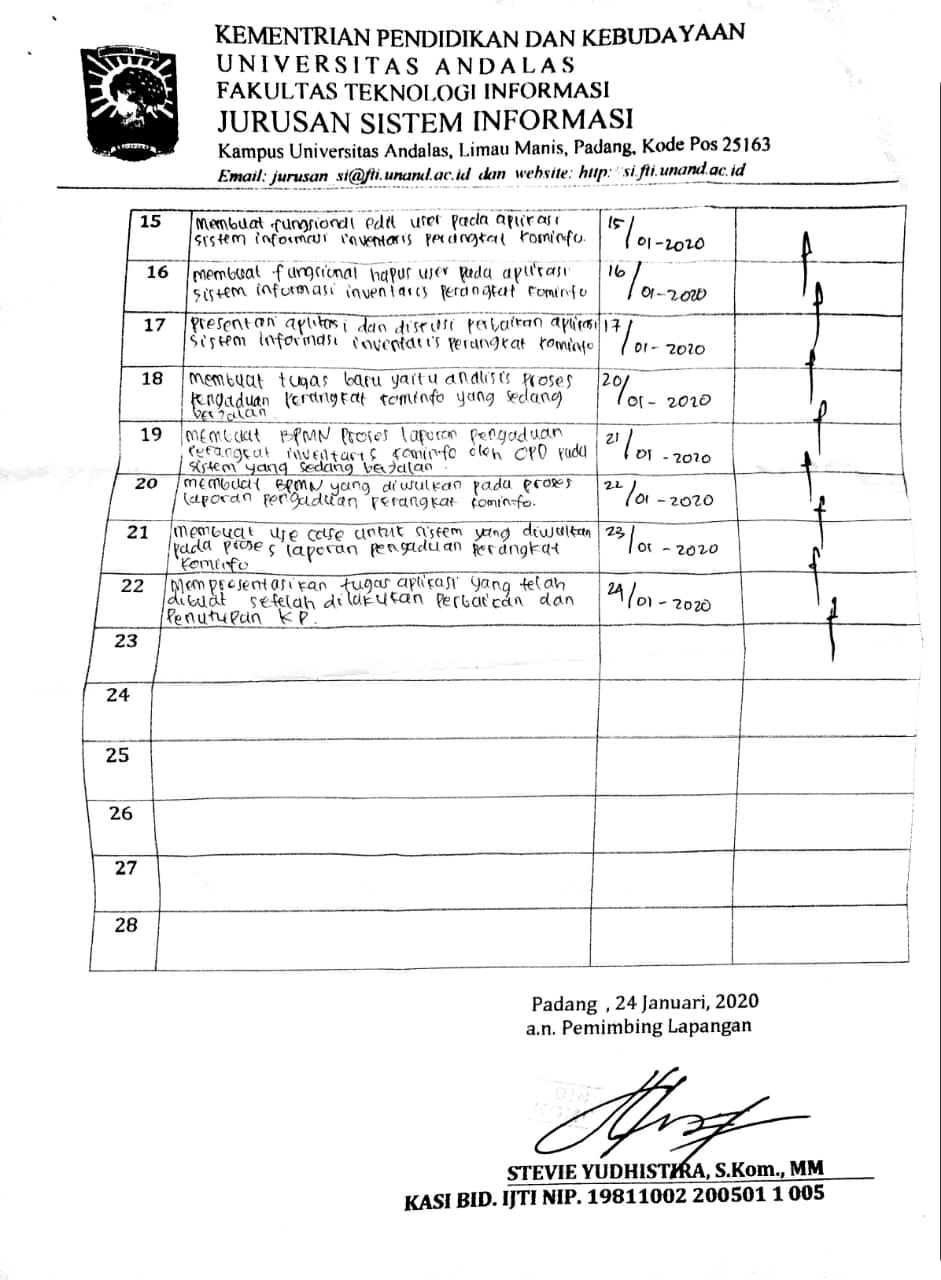 KEMENTRIAN PENDIDIKAN DAN KEBUDAYAAN
UNIVERSITAS ANDALAS
FAKULTAS TEKNOLOGI INFORMASI
JURUSAN SISTEM INFORMASI
Kampus Universitas Andalas, Limau Manis, Padang, Kode Pos 25163
Email: jurusan si@fti.unand.ac.id dan website: http: si.fti.unand.ac.id
15 Membuat fungsional edit user pada aplikasi 15/01-2020
sistem informasi inventaris perangkat kominfo.
16 membuat fungsional hapus user pada aplikasi 16/01-2020
sistem informasi inventaris perangkat kominfo
17 presentasi aplikasi dan diskusi perbaikan aplikasi 17/01-2020
sistem informasi inventaris perangkat kominfo
18 membuat tugas baru yaitu analisis proses 20/01-2020
pengaduan perangkat kominfo yang sedang
berjalan
19 membuat BPMN proses laporan pengaduan 21/01-2020
perangkat inventaris kominfo oleh OPD pada
sistem yang sedang berjalan.
20 membuat BPMN yang diusulkan pada proses 22/01-2020
laporan pengaduan perangkat kominfo.
21 membuat use case untuk sistem yang diusulkan 23/01-2020
pada proses laporan pengaduan perangkat
kominfo
22 Mempresentasikan tugas aplikasi yang telah 24/01-2020
dibuat setelah dilakukan perbaikan dan
Penutupan KP.
23
24
25
26
27
28
Padang , 24 Januari, 2020
a.n. Pemimbing Lapangan
STEVIE YUDHISTIRA, S.Kom., MM
KASI BID. IJTI NIP. 19811002 200501 1 005